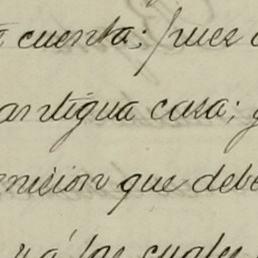 cuenta; pues
antigua casa; y
que debe
á los cuales